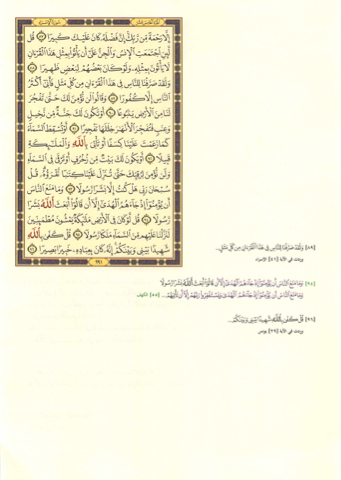 الجزء الخامس عشر سورة الإسراء
إِلَّا رَحْمَةً مِّن رَّبِّكَ إِنَّ فَضْلَهُۥ كَانَ عَلَيْكَ كَبِيرًا ٨٧ قُل
لَّئِنِ ٱجْتَمَعَتِ ٱلْإِنسُ وَٱلْجِنُّ عَلَىٰٓ أَن يَأْتُوا۟ بِمِثْلِ هَٰذَا ٱلْقُرْءَانِ
لَا يَأْتُونَ بِمِثْلِهِۦ وَلَوْ كَانَ بَعْضُهُمْ لِبَعْضٍ ظَهِيرًا ٨٨
وَلَقَدْ صَرَّفْنَا لِلنَّاسِ فِى هَٰذَا ٱلْقُرْءَانِ مِن كُلِّ مَثَلٍ فَأَبَىٰٓ أَكْثَرُ
ٱلنَّاسِ إِلَّا كُفُورًا ٨٩ وَقَالُوا۟ لَن نُّؤْمِنَ لَكَ حَتَّىٰ تَفْجُرَ
لَنَا مِنَ ٱلْأَرْضِ يَنۢبُوعًا ٩٠ أَوْ تَكُونَ لَكَ جَنَّةٌ مِّن نَّخِيلٍ
وَعِنَبٍ فَتُفَجِّرَ ٱلْأَنْهَٰرَ خِلَٰلَهَا تَفْجِيرًا ٩١ أَوْ تُسْقِطَ ٱلسَّمَآءَ
كَمَا زَعَمْتَ عَلَيْنَا كِسَفًا أَوْ تَأْتِىَ بِٱللَّهِ وَٱلْمَلَٰٓئِكَةِ
قَبِيلًا ٩٢ أَوْ يَكُونَ لَكَ بَيْتٌ مِّن زُخْرُفٍ أَوْ تَرْقَىٰ فِى ٱلسَّمَآءِ
وَلَن نُّؤْمِنَ لِرُقِيِّكَ حَتَّىٰ تُنَزِّلَ عَلَيْنَا كِتَٰبًا نَّقْرَؤُهُۥ قُلْ
سُبْحَانَ رَبِّى هَلْ كُنتُ إِلَّا بَشَرًا رَّسُولًا ٩٣ وَمَا مَنَعَ ٱلنَّاسَ
أَن يُؤْمِنُوٓا۟ إِذْ جَآءَهُمُ ٱلْهُدَىٰٓ إِلَّآ أَن قَالُوٓا۟ أَبَعَثَ ٱللَّهُ بَشَرًا
رَّسُولًا ٩٤ قُل لَّوْ كَانَ فِى ٱلْأَرْضِ مَلَٰٓئِكَةٌ يَمْشُونَ مُطْمَئِنِّينَ
لَنَزَّلْنَا عَلَيْهِم مِّنَ ٱلسَّمَآءِ مَلَكًا رَّسُولًا ٩٥ قُلْ كَفَىٰ بِٱللَّهِ
شَهِيدًۢا بَيْنِى وَبَيْنَكُمْ إِنَّهُۥ كَانَ بِعِبَادِهِۦ خَبِيرًۢا بَصِيرًا ٩٦
٢٩١
[٨٩] وَلَقَدْ صَرَّفْنَا لِلنَّاسِ فِى هَٰذَا ٱلْقُرْءَانِ مِن كُلِّ مَثَلٍ...
وردت في الآية [٤١] الإسراء
[٩٤] وَمَا مَنَعَ ٱلنَّاسَ أَن يُؤْمِنُوٓا۟ إِذْ جَآءَهُمُ ٱلْهُدَىٰٓ إِلَّآ أَن قَالُوٓا۟ أَبَعَثَ ٱللَّهُ بَشَرًا رَّسُولًا
وَمَا مَنَعَ ٱلنَّاسَ أَن يُؤْمِنُوٓا۟ إِذْ جَآءَهُمُ ٱلْهُدَىٰ وَيَسْتَغْفِرُوا۟ رَبَّهُمْ إِلَّآ أَن تَأْتِيَهُمْ... [٥٥] الكهف
[٩٦] قُلْ كَفَىٰ بِٱللَّهِ شَهِيدًۢا بَيْنِى وَبَيْنَكُمْ...
وردت في الآية [٢٩] يونس